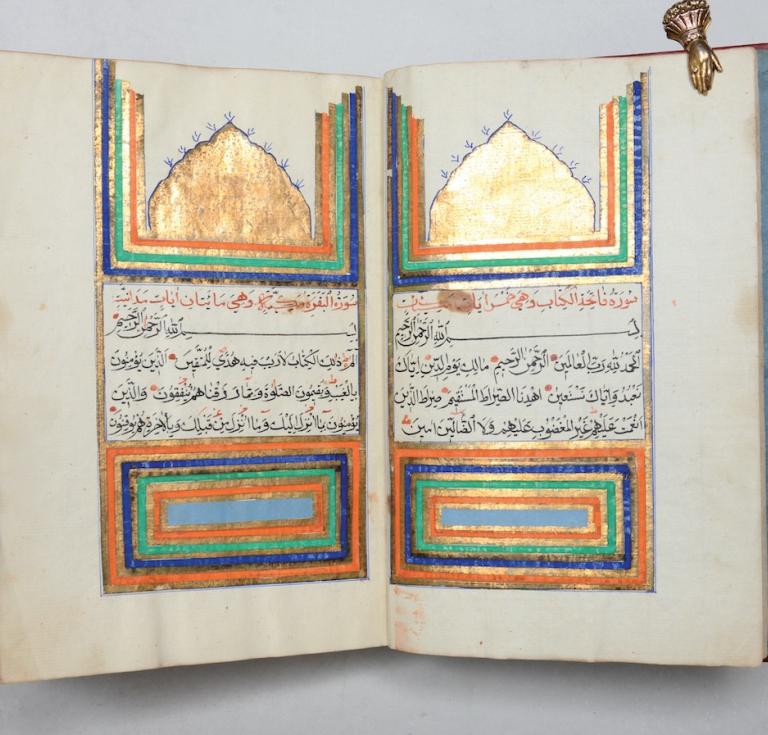 سورة فاتحة الكتاب وهي خمس ايات
بسم الله الرحمن الرحيم
الحمد لله رب العالمين الرحمن الرحيم مالك يوم الدين اياك
نعبد واياك نستعين اهدنا الصراط المستقيم صراط الذين
انعمت عليهم غير المغضوب عليهم ولا الضالين امين
سورة البقرة وهي مايتان ايات مدانية
بسم الله الرحمن الرحيم
الم ذلك الكتاب لا ريب فيه هدى للمتقين الذين يومنون
بالغيب ويقيمون الصلوة ومما رزقناهم ينفقون والذين
يؤمنون بما انزل اليك وما انزل من قبلك وبالاخرة هم يوقنون